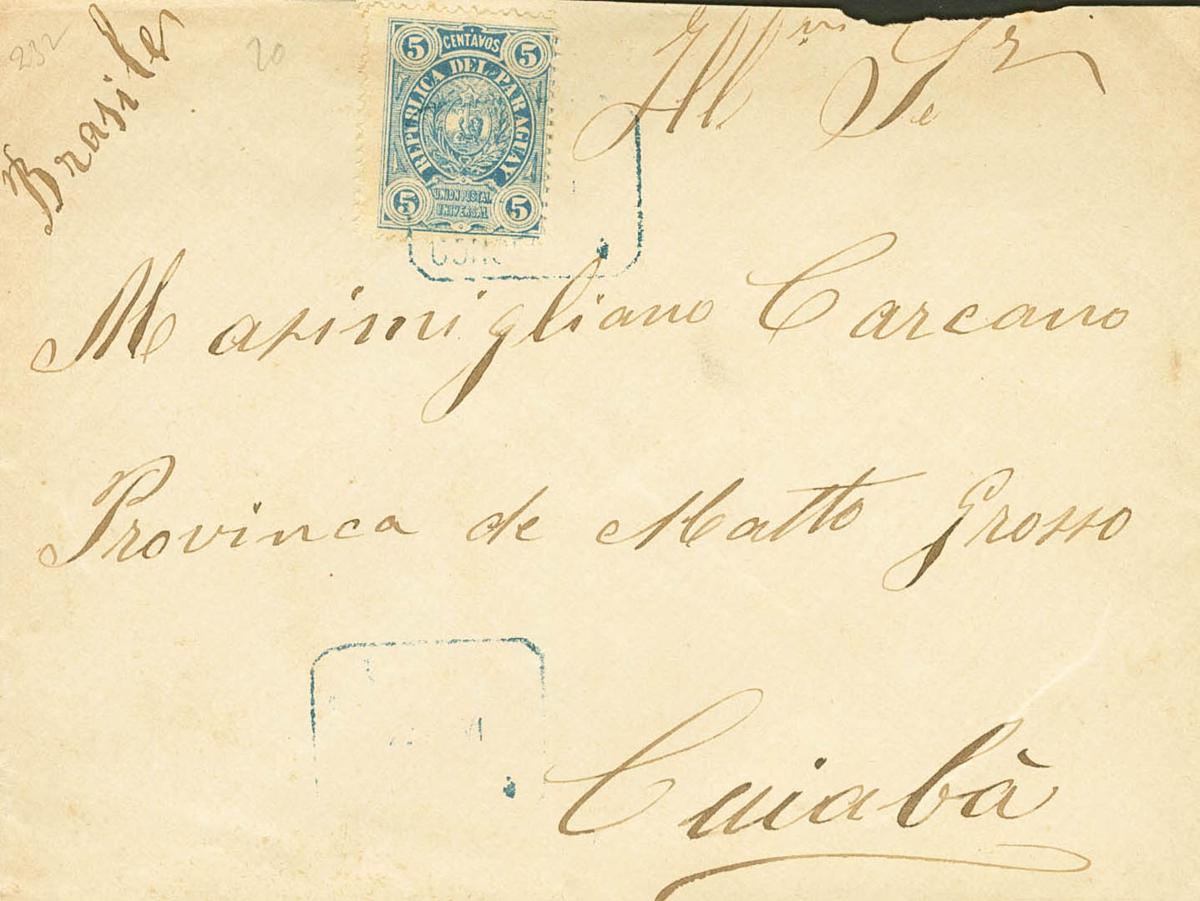 232
20
Brasile
5 CENTAVOS 5
REPUBLICA DEL PARAGUAY
5 UNION POSTAL 5
UNIVERSAL
Sr
Masimigliano Carcano
Provinca de Matto Grosso
Cuiabà